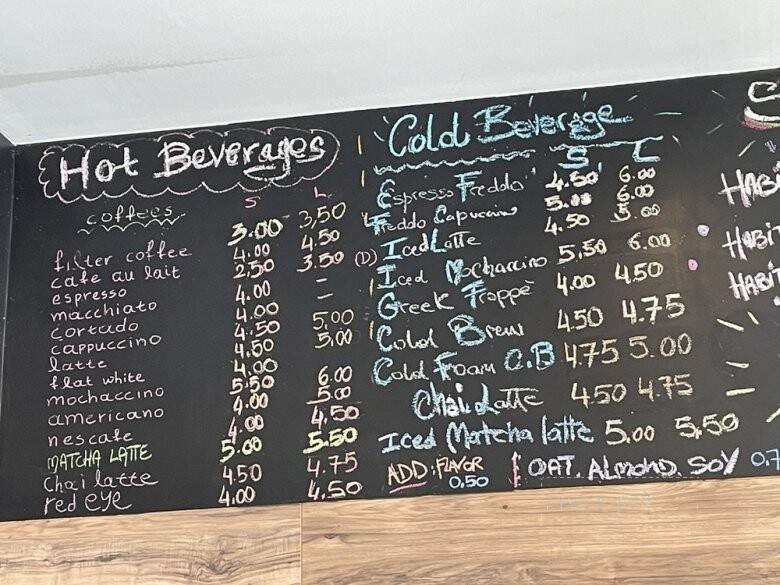 Hot Beverages
S L
coffees
filter coffee 3.00 3,50
cafe au lait 4.00 4.50
espresso 2.50 3.50 (D)
macchiato 4.00 –
cortado 4.00 –
cappuccino 4.50 5.00
latte 4.50 5.00
flat white 4.00
mochaccino 5.50 6.00
americano 4.00 5.00
nescafe 4.00 4.50
MATCHA LATTE 5.00 5.50
Chai latte 4.50 4.75
red eye 4.00 4.50
Cold Beverage
S L
Espresso Freddo 4.50 6.00
Freddo Capuccino 5.00 6.00
Iced Latte 4.50 5.00
Iced Mochaccino 5.50 6.00
Greek Frappe 4.00 4.50
Cold Brew 4.50 4.75
Cold Foam C.B 4.75 5.00
Chai Latte 4.50 4.75
Iced Matcha latte 5.00 5.50
ADD: FLAVOR 0.50
OAT. ALMOND. SOY 0.7
HABI
HABIT
HABI